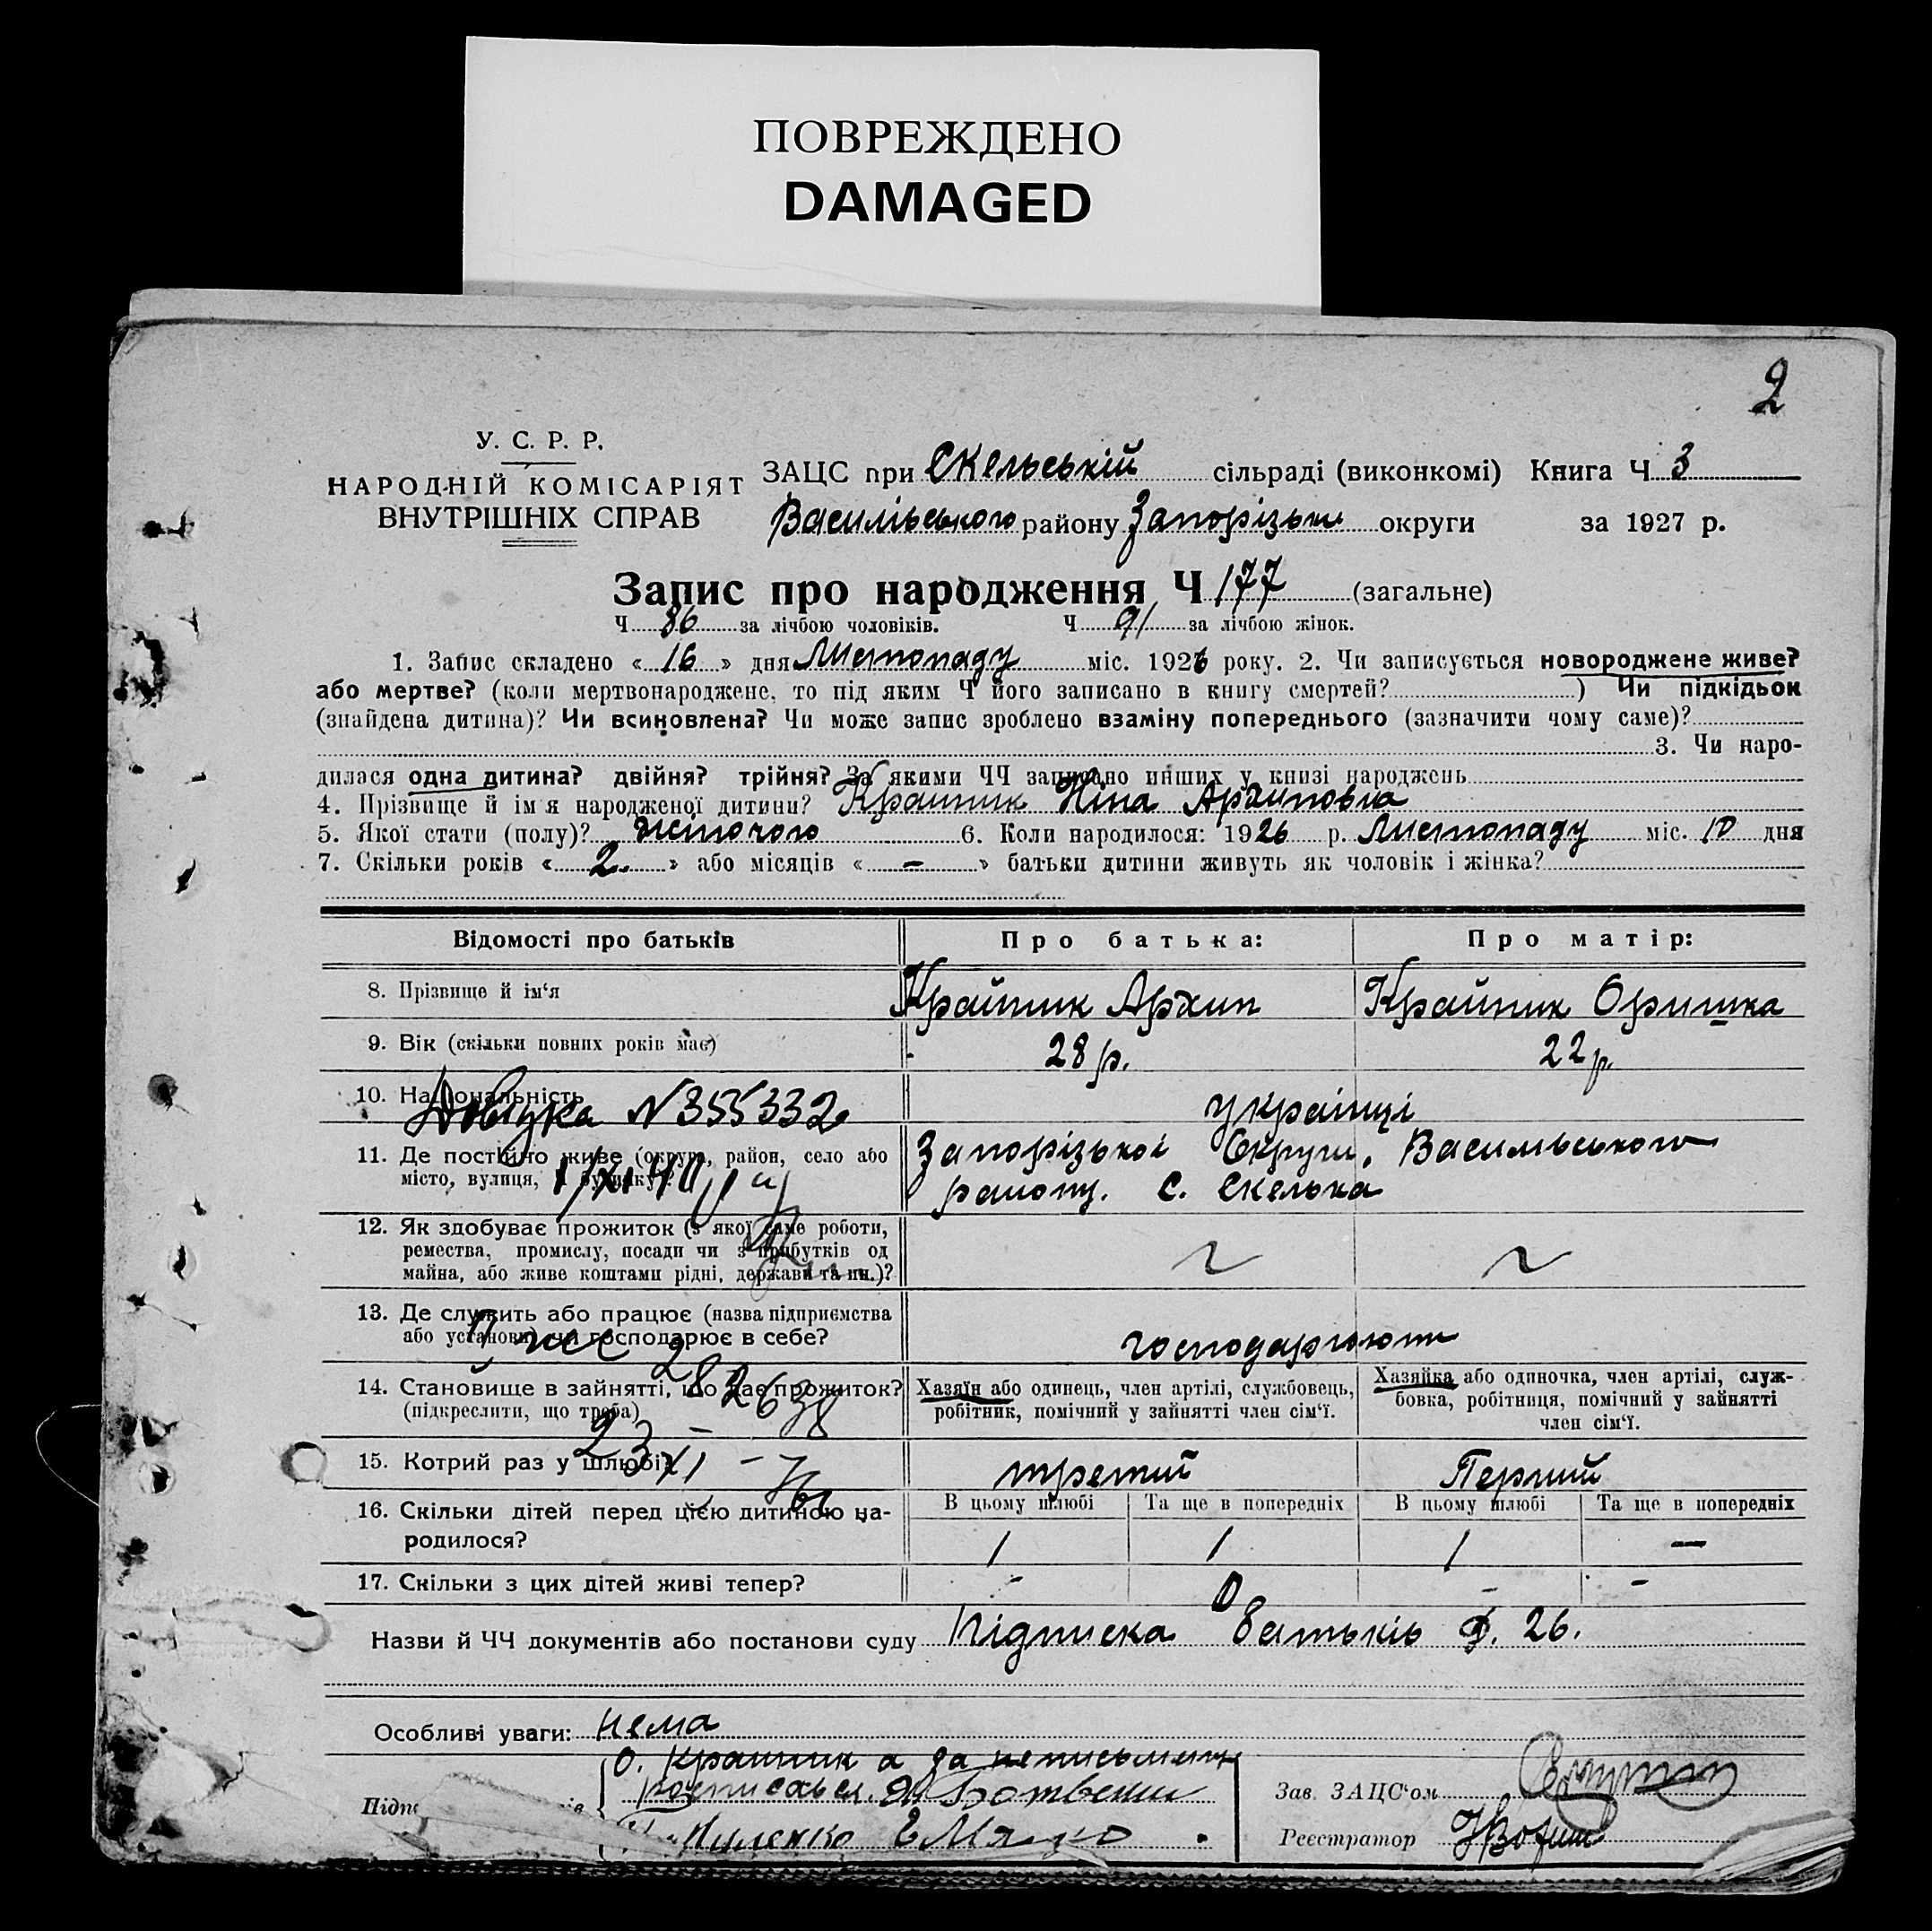 ПОВРЕЖДЕНО
DAMAGED
2
У. С. Р. Р.
НАРОДНІЙ КОМІСАРІЯТ
ВНУТРІШНІХ СПРАВ
ЗАЦС при Скельській сільраді (виконкомі) Книга Ч 3
Васильвського району Запорізьки округи за 1927 р.
Запис про народження Ч 177 (загальне)
Ч 86 за лічбою чоловіків. Ч 91 за лічбою жінок.
1. Запис складено « 16 » дня Листопаду міс. 1926 року. 2. Чи записується новороджене живе?
або мертве? (коли мертвонароджене, то під яким Ч його записано в книгу смертей? ) Чи підкідьок
(знайдена дитина)? Чи всиновлена? Чи може запис зроблено взаміну попереднього (зазначити чому саме)?
3. Чи наро-
дилася одна дитина? двійня? трійня? За якими ЧЧ записано инших у книзі народжень
4. Прізвище й ім'я народженої дитини? Крайник Ніна Архиповна
5. Якої стати (полу)? жіночого 6. Коли народилося: 1926 р. Листопаду міс. 10 дня
7. Скільки років « 2 » або місяців « – » батьки дитини живуть як чоловік і жінка?
Відомості про батьків Про батька: Про матір:
8. Прізвище й ім'я Крайник Архип Крайник Оришка
9. Вік (скільки повних років має) 28 р. 22 р.
10. Національність українці
Довідка N 355332
11. Де постійно живе (округа, район, село або Запорізької Округи, Васильвського
місто, вулиця, Ч будинку)? району. С. Скелька
12. Як здобуває прожиток (з якої саме роботи,
ремества, промислу, посади чи з прибутків од
майна, або живе коштами рідні, держави та ин.)?
13. Де служить або працює (назва підприємства
або установи) чи господарює в себе? господарюють
14. Становище в зайнятті, що дає прожиток? Хазяїн або одинець, член артілі, службовець, Хазяйка або одиночка, член артілі, служ-
(підкреслити, що треба) робітник, помічний у зайнятті член сім'ї. бовка, робітниця, помічний у зайнятті
член сім'ї.
15. Котрий раз у шлюбі? третий Перший
23 XI – 76
16. Скільки дітей перед цією дитиною на- В цьому шлюбі Та ще в попередніх В цьому шлюбі Та ще в попередніх
родилося? 1 1 1 —
17. Скільки з цих дітей живі тепер? - 0 - -
Назви й ЧЧ документів або постанови суду Підписка батьків Ф. 26.
Особливі уваги: Нема
О. Крайник а за неписьмен
росписався
Зав. ЗАЦС'ом
Реєстратор